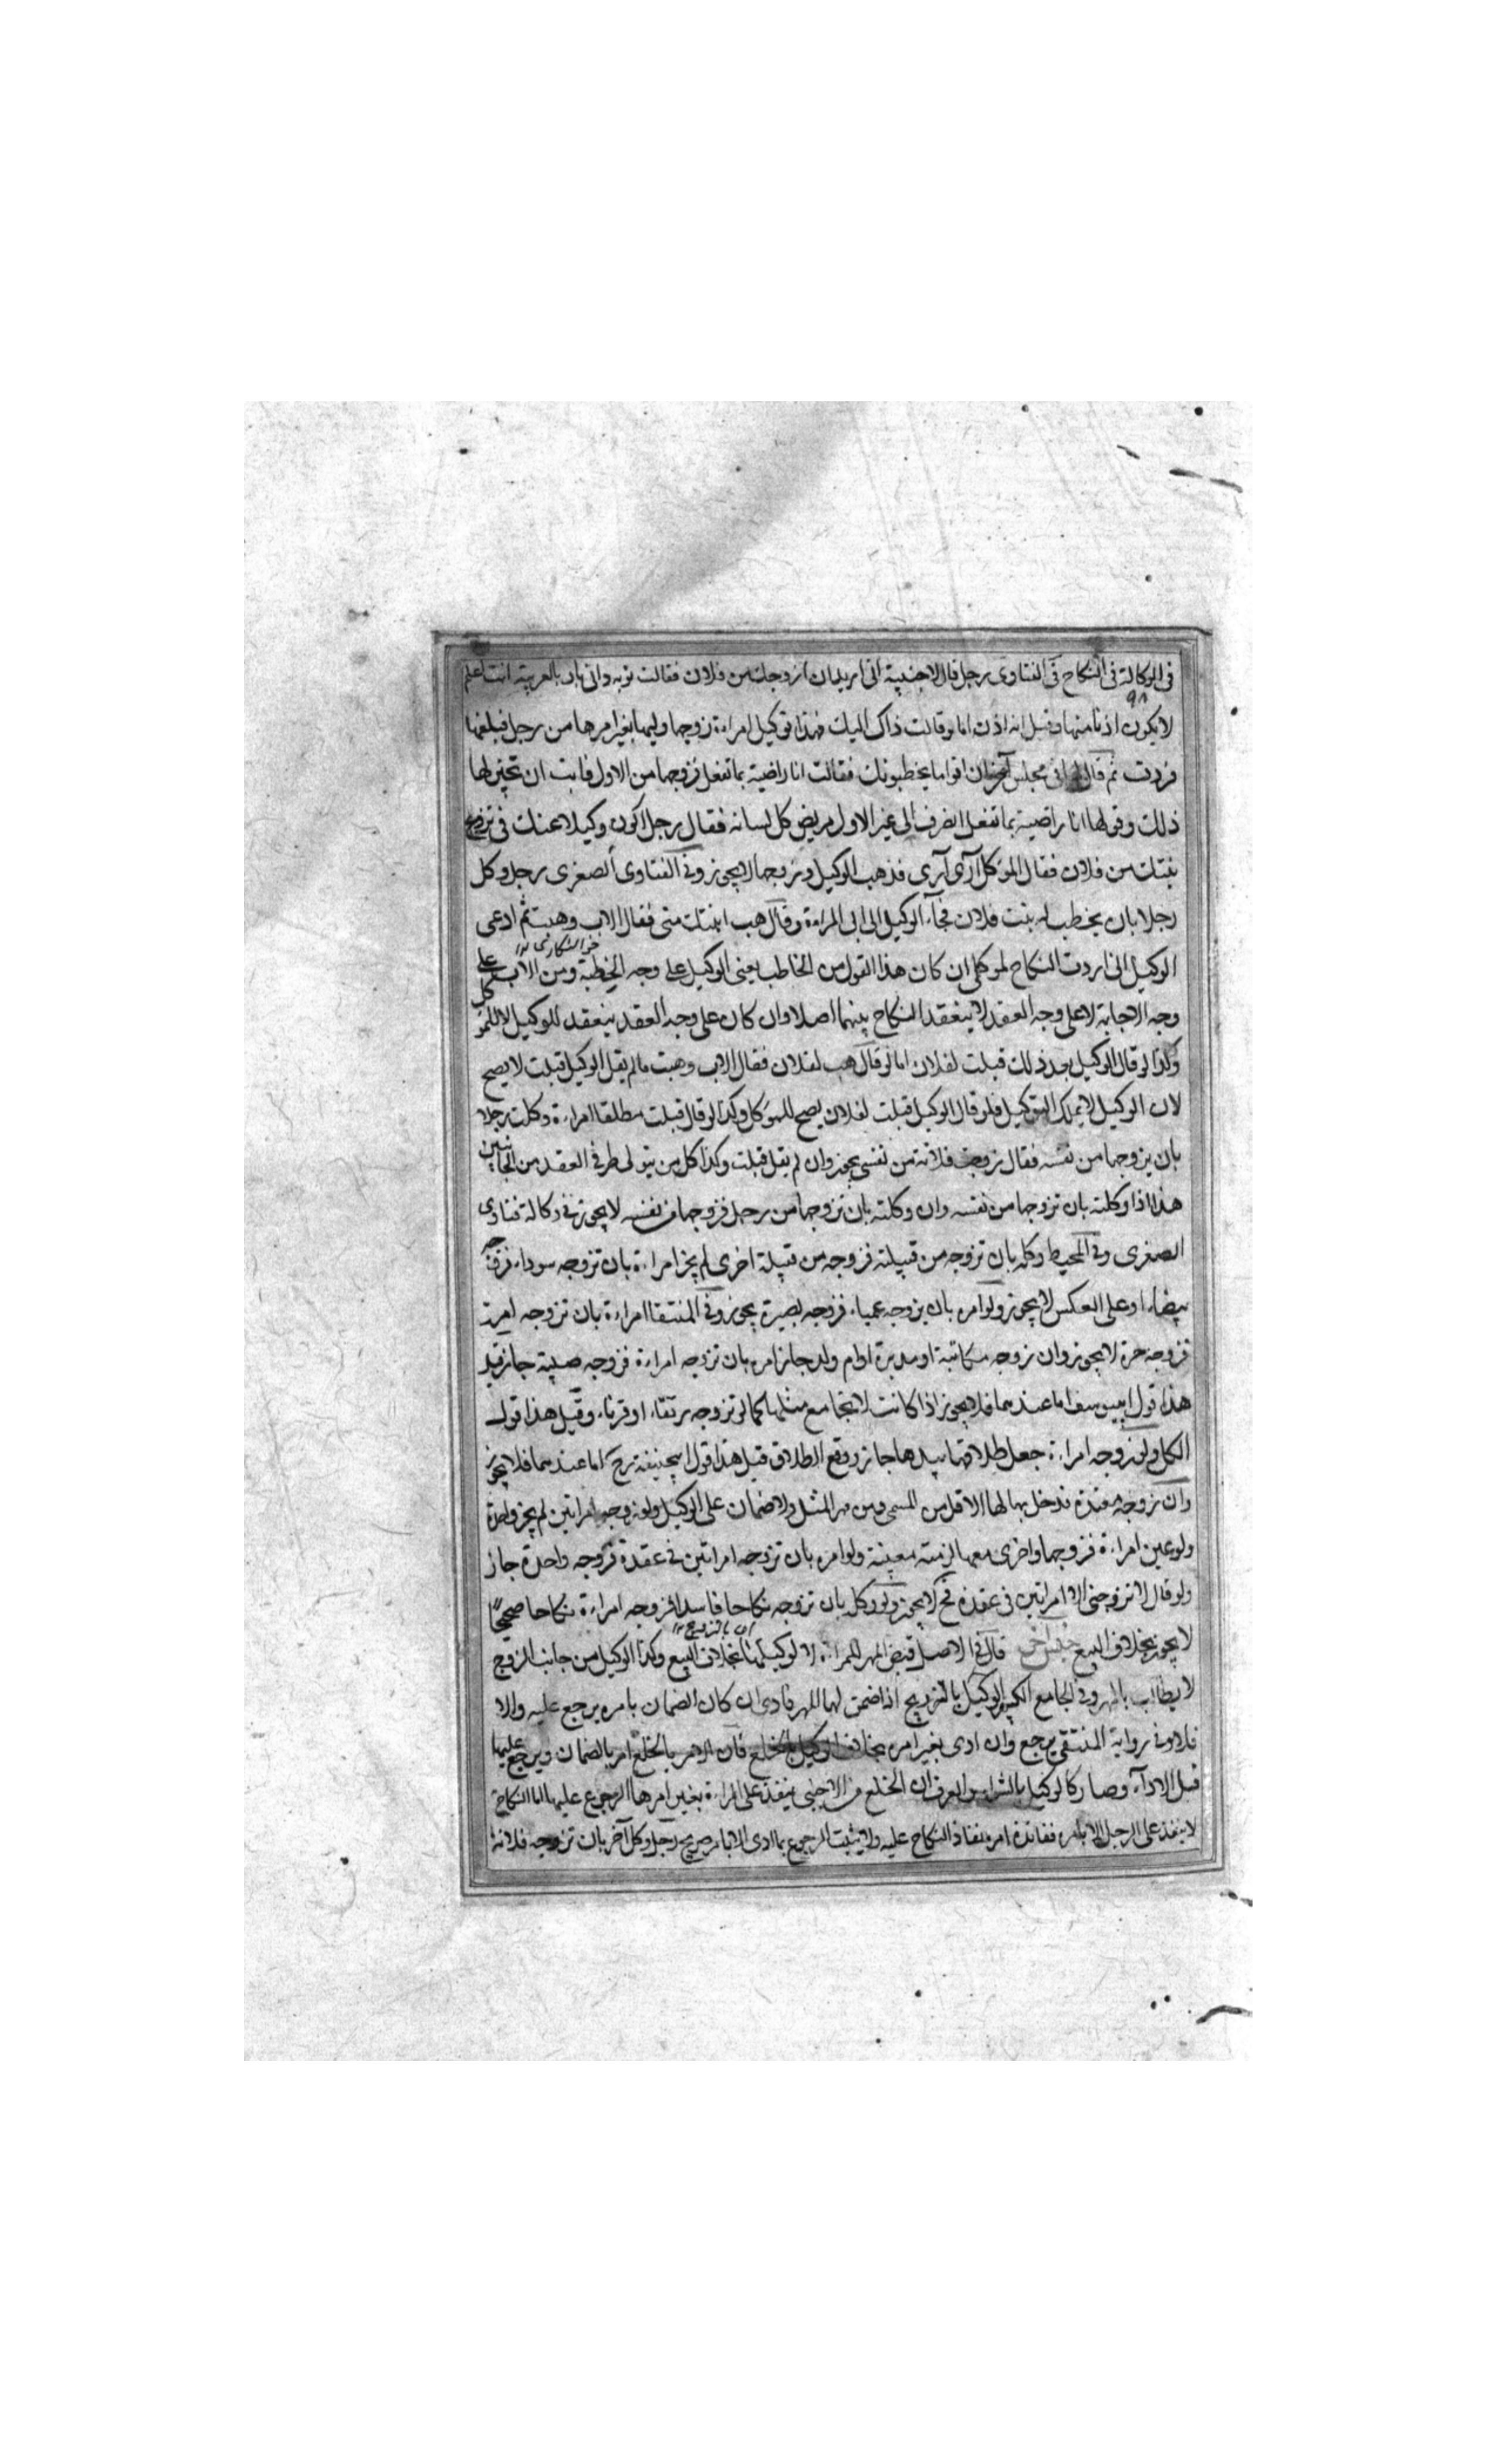 في الوكالة في النكاح في الفتاوى رجل قال لاجنبية اني اريد ان ازوجك من فلان فقالت توبه داني بالعربية انت اعلم
٩٨
لا يكون اذنا منها وقيل انه اذن اما لو قالت ذاك اليك فهذا توكيل امراءة زوجها وليها بغير امرها من رجل فبلغها
فردت ثم قال لها في مجلس آخر ان اقواما يخطبونك فقالت انا راضية بما تفعل فزوجها من الاول فابت ان تجيز لها
ذلك وقولها انا راضية بما تفعل انصرف الى غير الاول مريض كل لسانه فقال رجل اكون وكيلا عنك في تزويج
بنتك من فلان فقال الموكل آرى آرى فذهب الوكيل وزوجها لا يجوز وفي الفتاوى الصغرى رجل وكل
رجلا بان يخطب له بنت فلان فجآء الوكيل الى ابي المراءة وقال هب ابنتك مني فقال الاب وهبت ثم ادعى
الوكيل اني اردت النكاح لموكلي ان كان هذا القول من الخاطب يعني الوكيل على وجه الخطبة ومن الاب على
وجه الاجابة لا على وجه العقد لا ينعقد النكاح بينهما اصلا وان كان على وجه العقد ينعقد للوكيل لا للموكل
وكذا لو قال الوكيل بعد ذلك قبلت لفلان اما لو قال هب لفلان فقال الاب وهبت ما لم يقل الوكيل قبلت لا يصح
لان الوكيل لا يملك التوكيل فلو قال الوكيل قبلت لفلان يصح للموكل وكذا لو قال قبلت مطلقا امراءة وكلت رجلا
بان يزوجها من نفسه فقال زوجت فلانة من نفسي يجوز وان لم يقل قبلت وكذا كل من يتولى طرفي العقد من الجانبين
هذا اذا وكلته بان تزوجها من نفسه وان وكلته بان تزوجها من رجل فزوجها من نفسه لا يجوز في وكالة فتاوى
الصغرى وفي المحيط وكله بان تزوجه من قبيلته فزوجه من قبيلة اخرى لم يجز امراءة بان تزوجه سوداء فزوجه
بيضاء او على العكس لا يجوز ولو امره بان يزوجه عمياء فزوجه بصيرة يجوز وفي المنتقا امراءة بان تزوجه امة
فزوجه حرة لا يجوز وان زوجه مكاتبة او مدبرة او ام ولد جاز امره بان تزوجه امراءة فزوجه صبية جاز قيل
هذا قول ابي يوسف اما عندهما فلا يجوز اذا كانت لا يجامع مثلها كما لو تزوجه رتقاء او قرناء وقيل هذا قول
الكل ولو زوجه امراءة جعل طلاقها بيدها جاز ووقع الطلاق قيل هذا قول ابي حنيفة رح اما عندهما فلا يجوز
وان زوجه معتدة فدخل بها لها الاقل من المسمى ومن مهر المثل ولا ضمان على الوكيل ولو زوجه امراتين لم يجز واحدة
ولو عين امراءة فزوجها واخرى معها لزمته معينة ولو امره بان تزوجه امراتين في عقدة فزوجه واحدة جاز
ولو قال لا تزوجني الا امراتين في عقدة لا يجوز ولو وكل بان تزوجه نكاحا فاسدا فزوجه امراءة نكاحا صحيحا
لا يجوز بخلاف البيع قال في الاصل قبض المهر للمراءة لا لوكيلها بخلاف البيع وكذا الوكيل من جانب الزوج
لا يطالب بالمهر وفي الجامع الكبير الوكيل بالتزويج اذا ضمن لها المهر فادى ان كان الضمان بامره يرجع عليه والا
فلا وفي رواية المنتقى يرجع وان ادى بغير امره بخلاف الوكيل بالخلع فان الامر بالخلع امر بالضمان ويرجع عليها
قبل الادآء وصار كالوكيل بالشراء والفرق ان الخلع من الاجنبي ينفذ على المراءة بغير امرها الرجوع عليها اما النكاح
لا ينفذ على الرجل الا بامره ففائدة امره نفاذ النكاح عليه ولا يثبت الرجوع بما ادى الا بامر صريح رجل وكل آخر بان تزوجه فلانة